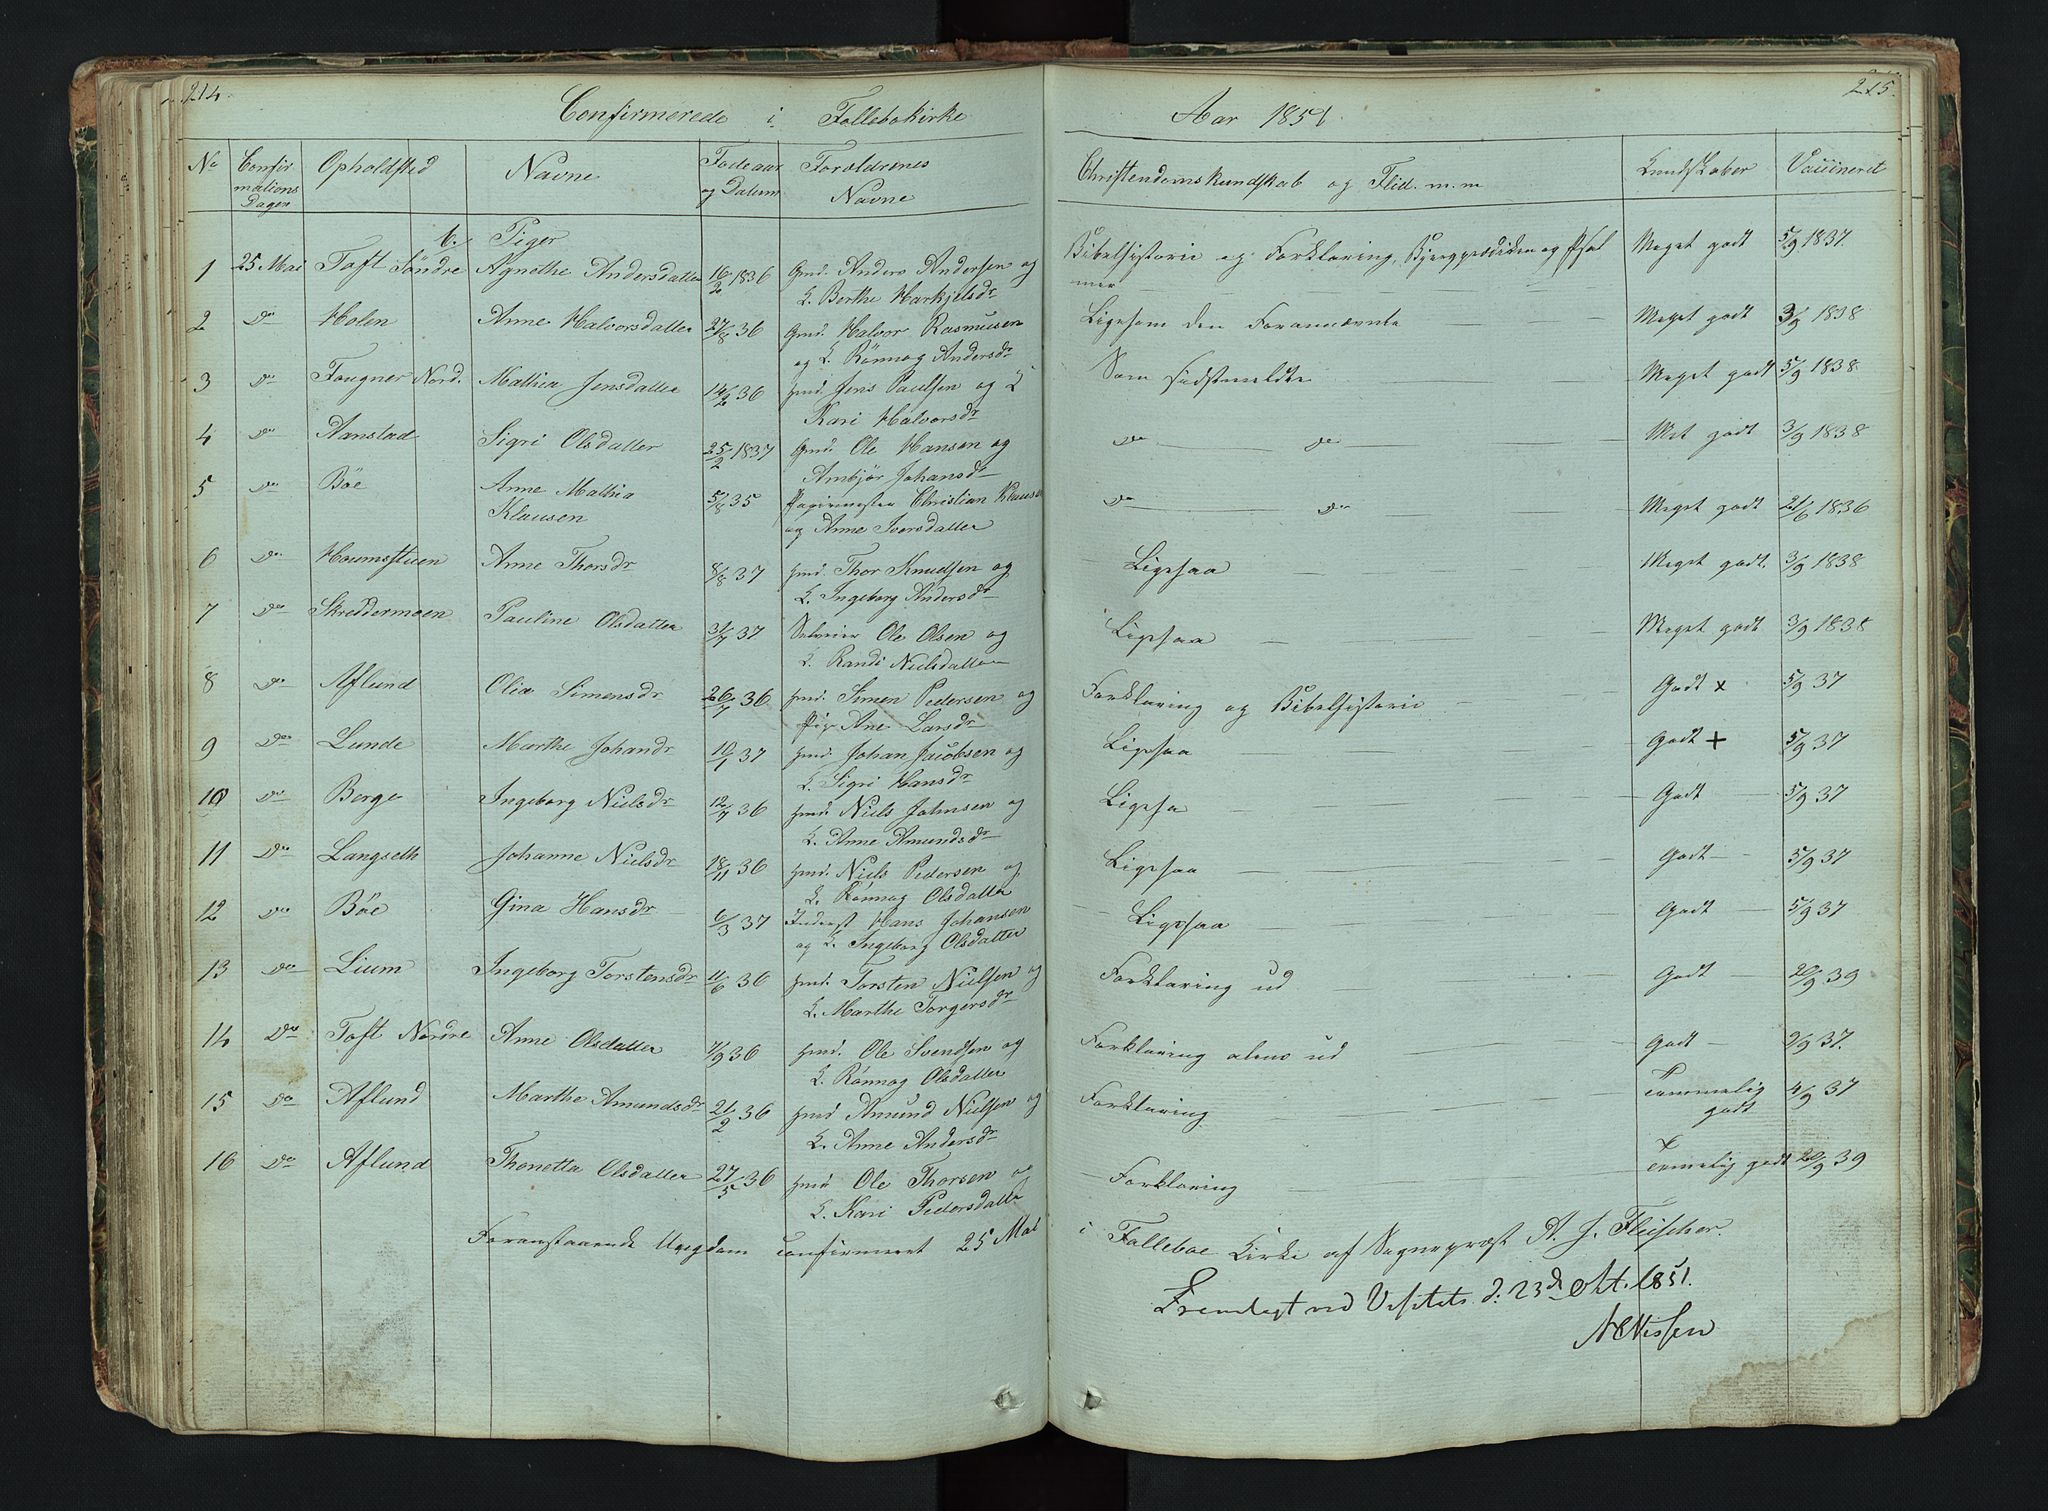 214.
Confirmerede i Follebokirke
No Confir mations Dagen Opholdsted Navne Fødeaar og Datum Foreldrenes Navne
b. Piger
1 25 Mai Toft Söndre Agnethe Andersdatter 16/2 1836 Gmd. Anders Andersen og
L. Berthe Harkjelsdr
2 do Holen Anne Halvorsdatter 27/8 36 Gmd. Halvor Rasmusen
og L. Rönnog Andersdr
3 do Fougner Nord. Mathia Jensdatter 14/2 36 Gmd. Jens Paulsen og L
Kari Halvorsdr
4 do Aanstad Sigri Olsdatter 25/2 1837 Gmd. Ole Hansen og
Ambjör Johansdr
5 do Böe Anne Mathia 5/8 35 Christian Klausen
Klausen og Anne Iversdatter
6 do Houmstuen Anne Thorsdr 8/8 37 Gmd. Thor Knudsen og
L. Ingeborg Andersdr
7 do Skreddermoen Pauline Olsdatter 31/7 37 Selveier Ole Olsen og
L. Randi Nielsdatter
8 do Aflund Olia Simensdr 26/7 36 Gmd. Simen Pedersen og
Pige Ane Larsdr
9 do Lunde Marthe Johandr 10/1 37 Gmd. Johan Jacobsen og
L. Sigri Hansdr
10 do Berge Ingeborg Nielsdr 12/7 36 Gmd. Niels Johnsen og
L. Anne Amundsdr
11 do Langseth Johanne Nielsdr 18/11 36 Gmd. Niels Pedersen og
L. Rönnog Olsdatter
12 do Böe Gina Hansdr 6/3 37 Inderst Hans Johansen
og L. Ingeborg Olsdatter
13 do Lium Ingeborg Torstensdr 11/6 36 Gmd. Torsten Nielsen og
L. Marthe Torgersdr
14 do Toft Nordre Anne Olsdatter 7/9 36 Gmd. Ole Svendsen og
L. Rönnog Olsdatter
15 do Aflund Marthe Amundsdr 21/2 36 Gmd Amund Nielsen og
L. Anne Andersdr
16 do Aflund Thonetta Olsdatter 27/5 36 Gmd Ole Thorsen og
L. Kari Pedersdatter
Foranstaaende Ungdom confirmeret 25 Mai
215.
Aar 1851
Christendomskundskab og Flid. m. m Kundskaber Vaccineret
Bibelhistorie og Forklaring, Bjergprædiken og Psal Meget godt 5/9 1837.
mer
Ligesom den Forannævnte Meget godt 3/9 1838
Som sidstmeldte Meget godt 5/9 1838
do do Met godt 3/9 1838
do do Meget godt 21/6 1836
Ligesaa Meget godt. 3/9 1838
Ligesaa Meget godt 3/9 1838
Forklaring og Bibelhistorie Godt x 5/9 37
Ligesaa Godt + 5/9 37
Ligesa Godt 5/9 37
Ligesaa Godt 5/9 37
Ligesaa Godt 5/9 37
Forklaring ud Godt 20/9 39
Forklaring alene ud Godt 2/9 37.
Forklaring Temmelig 4/9 37
godt
Forklaring Temelig godt 20/9 39
i Folleboe Kirke af Sogneprest A. J. Fleischer.
Fremlagt ved Visitats d: 23de Okt. 1851.